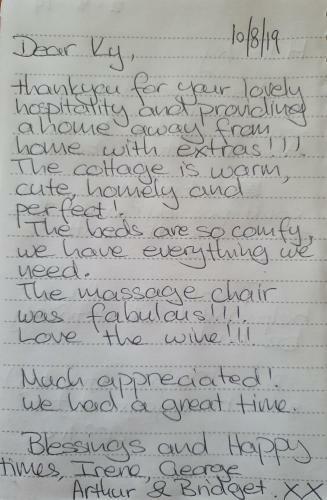 10/8/19
Dear Ky,
thankyou for your lovely
hospitality and providing
a home away from
home with extras!!!
The cottage is warm,
cute, homely and
perfect!
The beds are so comfy,
we have everything we
need.
The massage chair
was fabulous!!!!
Love the wine!!!
Much appreciated!
We had a great time.
Blessings and Happy
times, Irene, George
Arthur & Bridget. XX